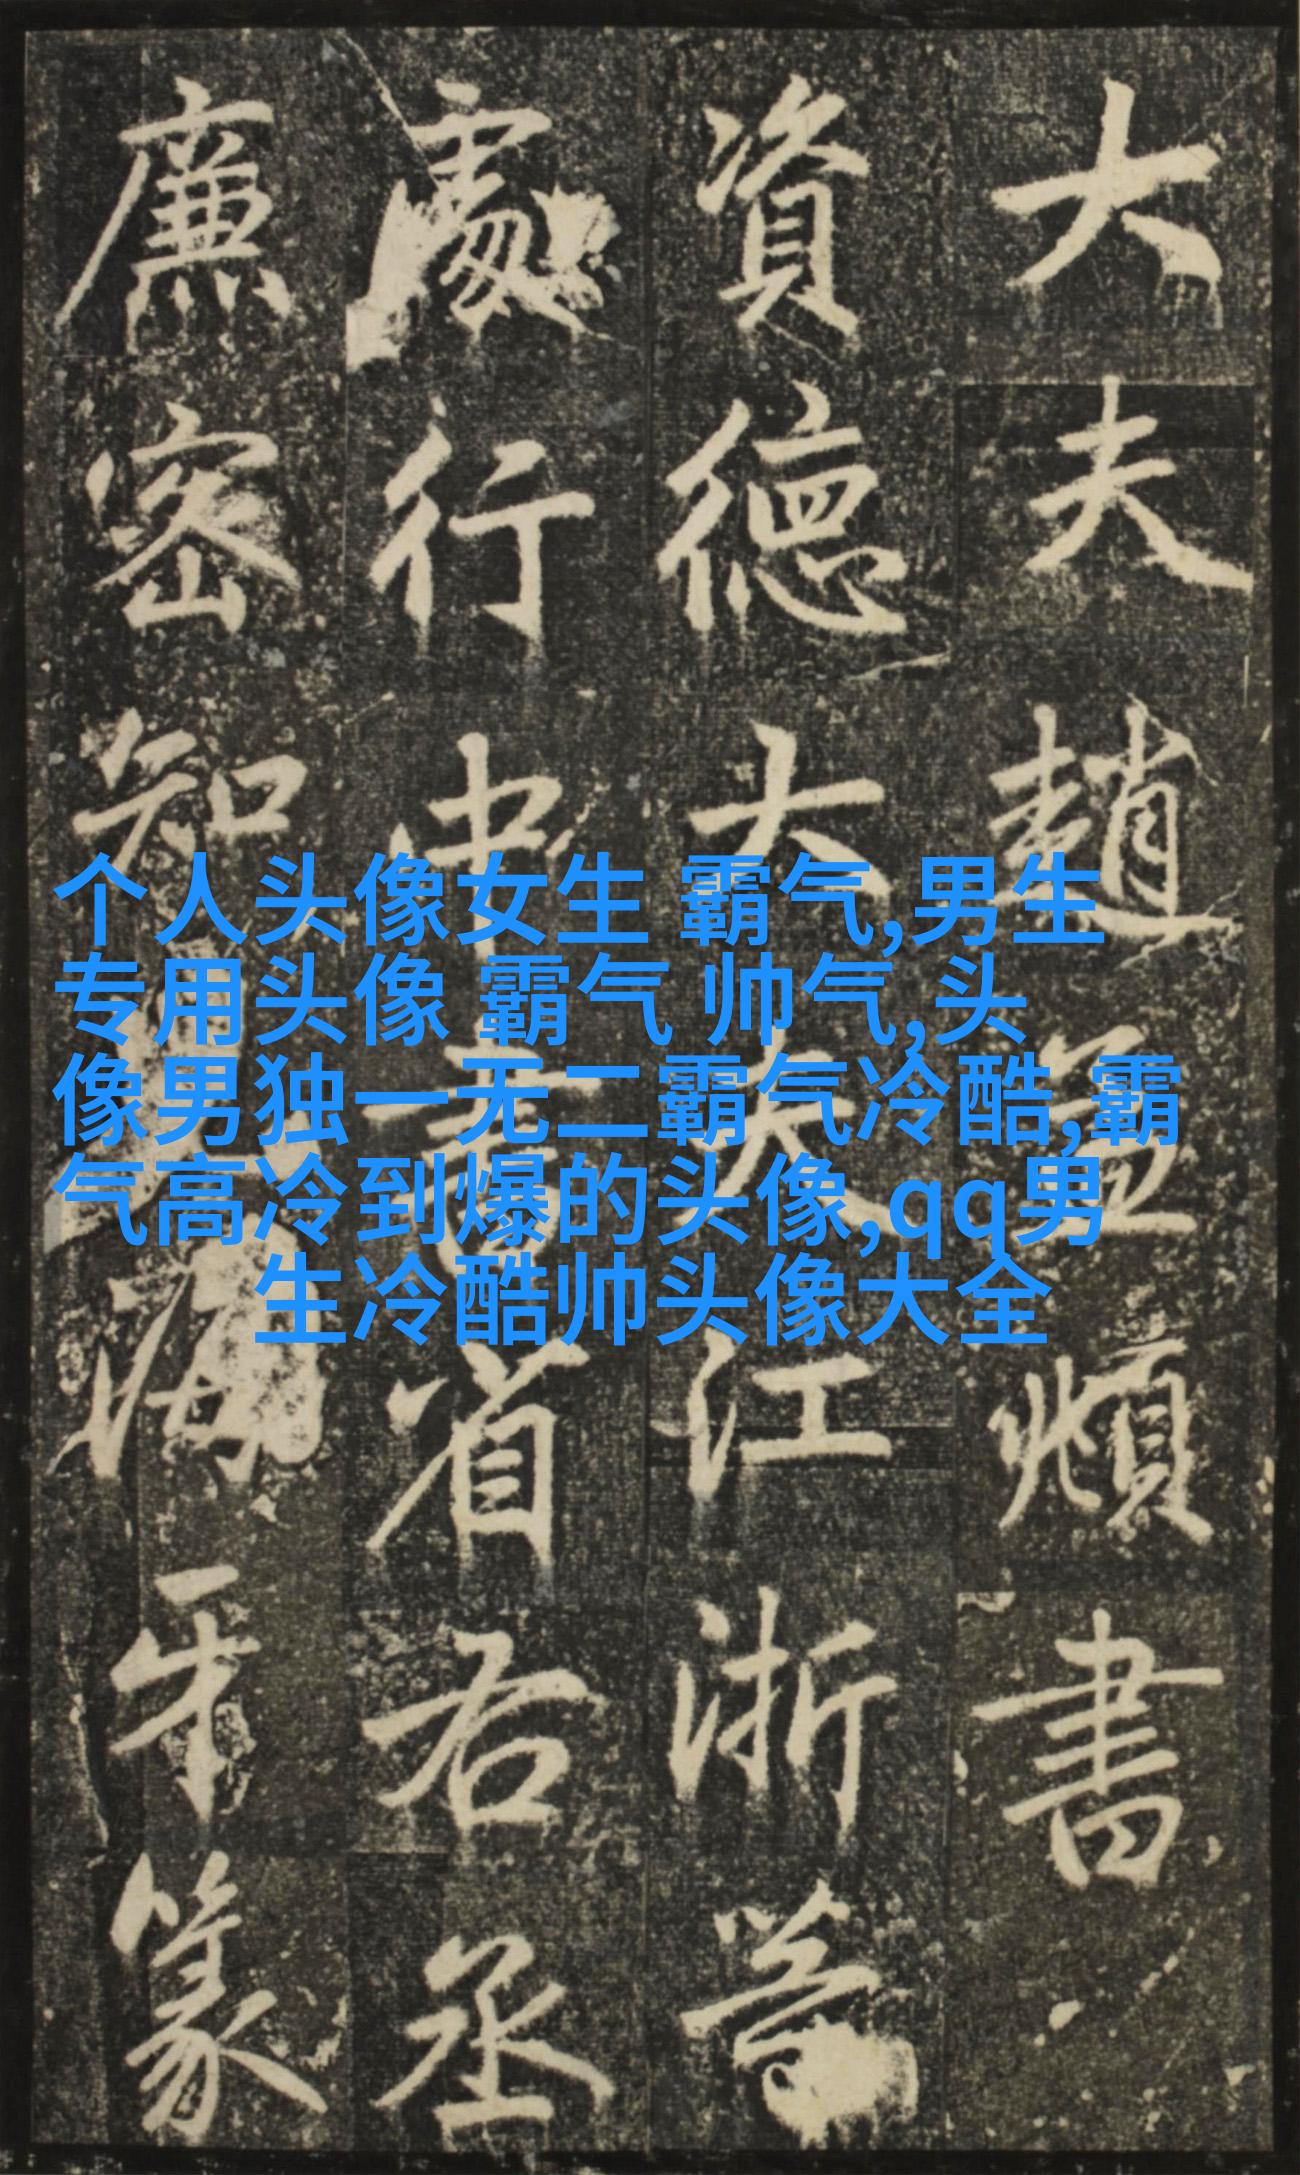 大夫趙孟頫書
資德大夫江浙等
處行中書省右丞
廉密知海牙篆
个人头像女生 霸气,男生
专用头像 霸气 帅气,头
像男独一无二霸气冷酷,霸
气高冷到爆的头像,qq男
生冷酷帅头像大全